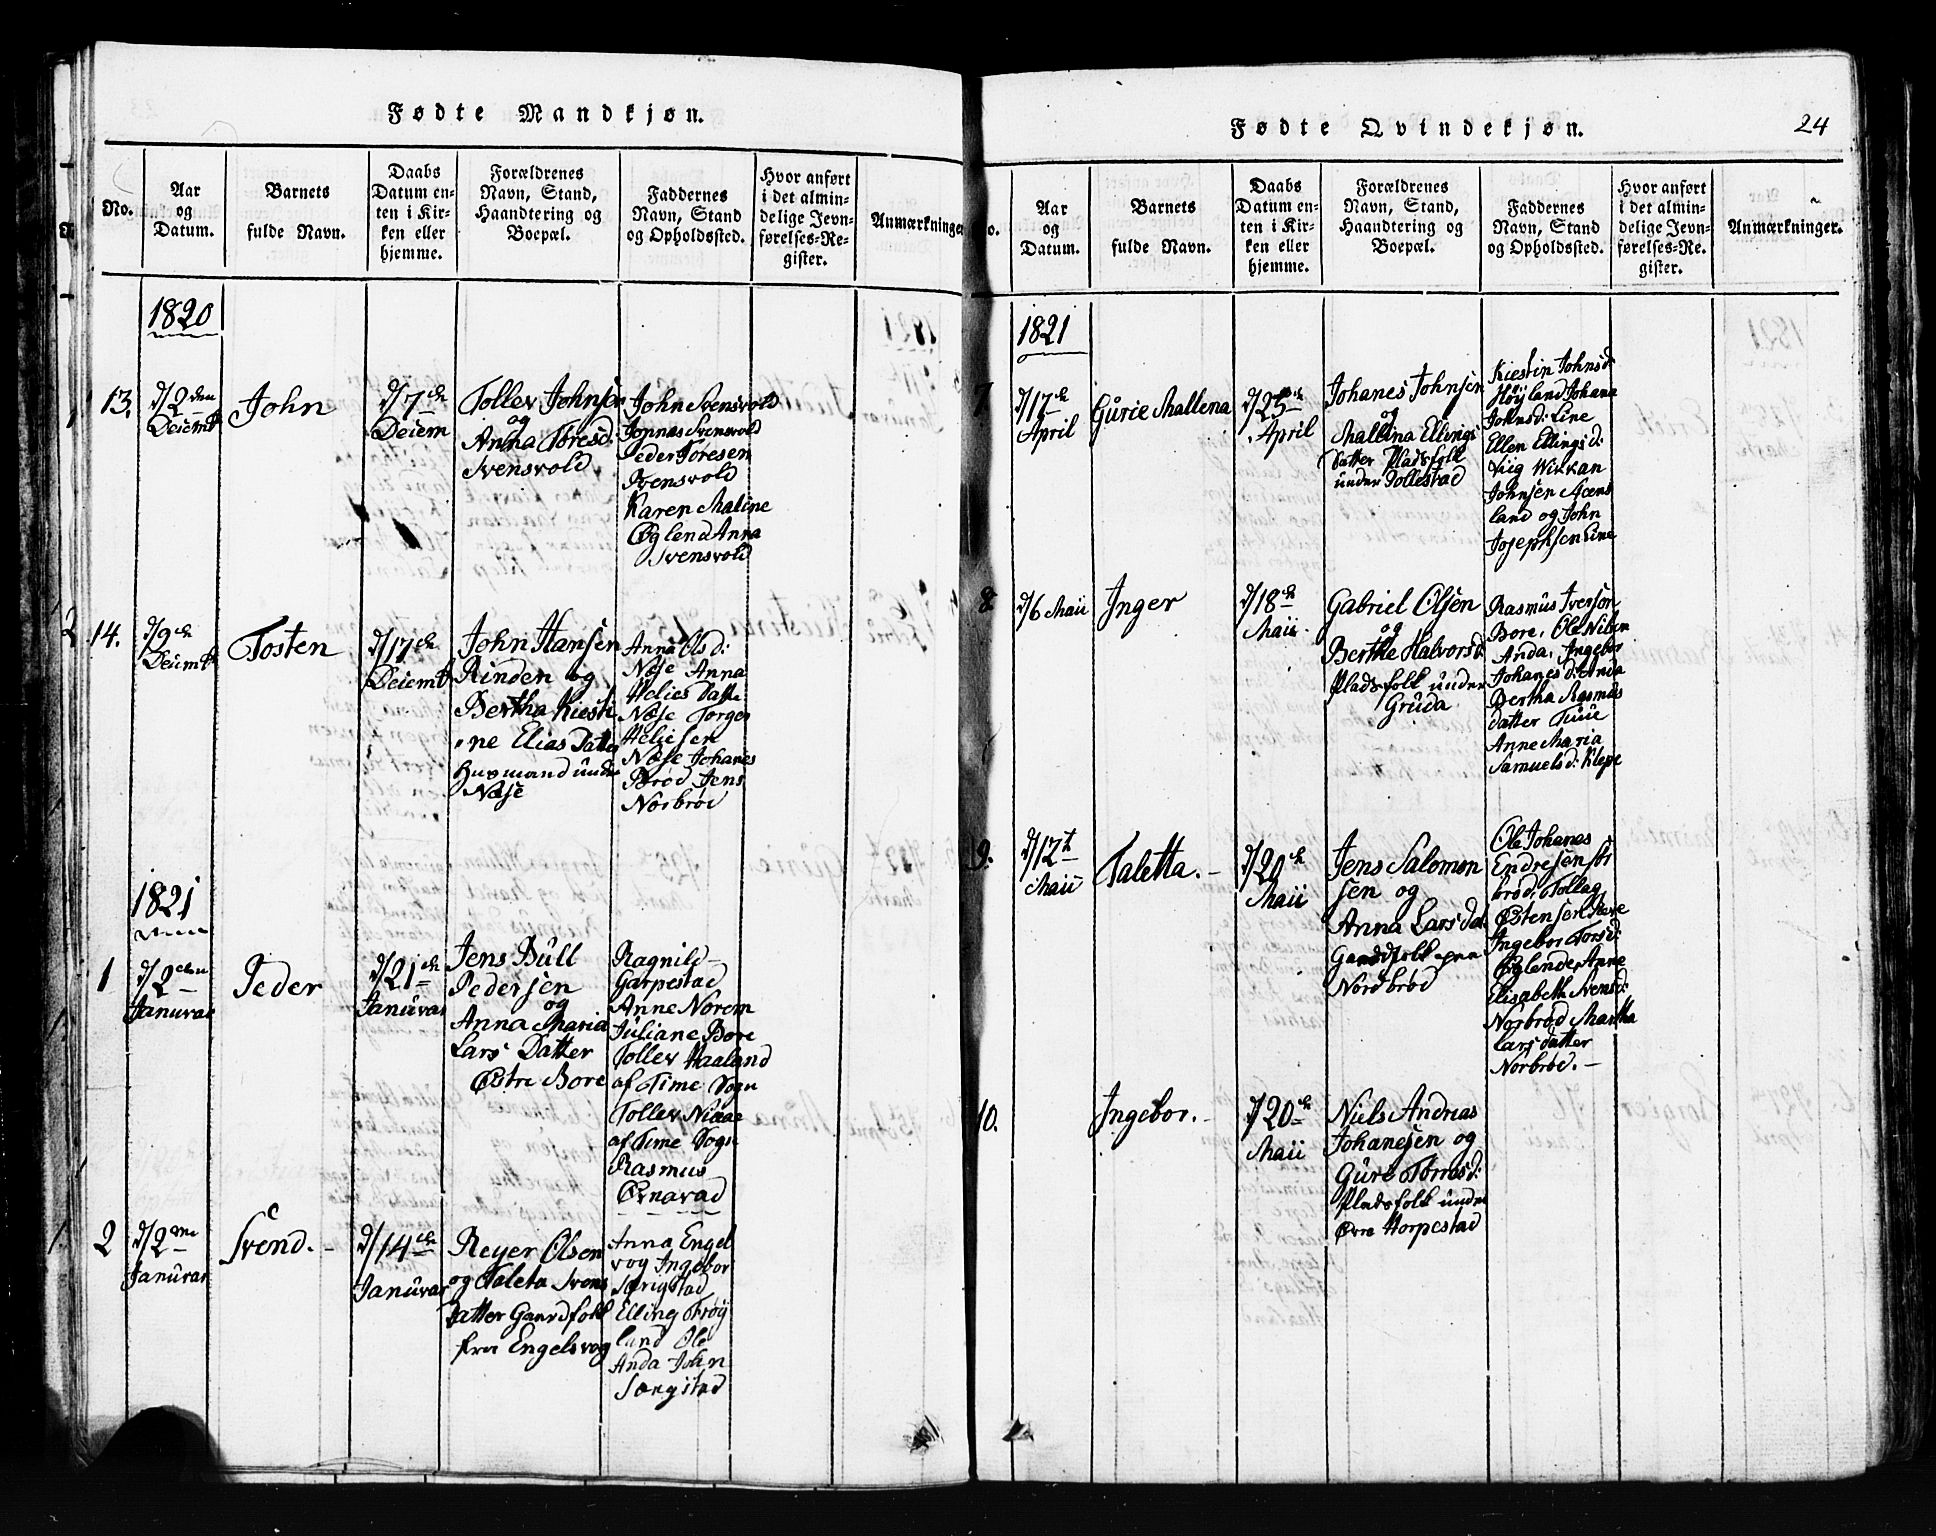 Fødte Mandkjøn.
No.
Aar
og
Datum.
Barnets
fulde Navn.
Daabs
Datum en-
ten i Kir-
ken eller
hjemme.
Forældrenes
Navn, Stand,
Haandtering og
Boepæl.
Faddernes
Navn, Stand
og Opholdssted.
Hvor anført
i det almin-
delige Jevn-
førelses-Re-
gister.
Anmærkninger
1820
13.
d/2den
Decembr
John
d/7de
Decem
Tollev Johnsen
og
Anna Toresd:
Svensvold
John Svensvold
Jonnas Svensvold
Peder Toresen
Svensvold
Karen Maline
Øglend Anna
Svensvold
14.
d/9de
Decembr
Tosten
d/17de
Decembr
John Hansen
Rinden og
Bertha Kiesti
ne Elias Datter
Husmand under
Næse
Anna Ols d:
Næse Anna
Helies Datte
Næse Torger
Heliesen
Næse Johanes
Brød Jens
Norbrød
1821
1
d/2den
Januvar
Peder
d/21de
Januvar
Jens Bull
Pedersen
og
Anna Maria
Lars Datter
Østre Bore
Ragnild
Garpestad
Anne Norem
Juliane Bore
Tollev Haaland
af Time Sogn
Tollev Niaae
af Time Sogn
Rasmus
Ørnavad
2
d/2den
Januvar
Svend.
d/14de
Januvar
Reyer Olsen
og Taleta Svens
Datter Gaardfolk
fra Engelsvog
Anna Engel
vog Ingebor
Særigstad
Elling Frøy
land Ole
Anda John
Særgstad
Fødte Qvindekjøn.
24
No.
Aar
og
Datum.
Barnets
fulde Navn.
Daabs
Datum en-
ten i Kir-
ken eller
hjemme.
Forældrenes
Navn, Stand,
Haandtering og
Boepæl.
Faddernes
Navn, Stand
og Opholdssted.
Hvor anført
i det almin-
delige Jevn-
førelses-Re-
gister.
Anmærkninger.
1821
7
d/17de
April
Gurie Mallena
d/25de
April
Johanes Johnsen
og
Mallina Ellings
Datter Pladsfolk
under Tollestad
Kiestin Johnsd:
Høyland Johana
Johnsd: Line
Ellen Ellingsd:
Lieg
Johnsen
land og John
Josephsen Line
8.
d/6 Maii
Inger
d/18de
Maii
Gabriel Olsen
og
Berthe Halvorsd:
Pladsfolk under
Gruda
Rasmus Iversøn
Bore, Ole Nilsen
Anda, Ingebor
Johanesd: Anda
Bertha Rasmus
datter Tuue
Anne Maria
Samuelsd: Kleppe
9.
d/12t
Maii
Taletta.
d/20de
Maii
Jens Salomon
sen og
Anna Lars Dat
Gaardfolk paa
Nordbrød
Ole Johanes
Endresen
brød, Tollag
Østensen Bore
Ingebor Torsd:
Øglende Anne
Elisabeth Svensd:
Norbrød Martha
Lars datter
Norbrød.
10.
Ingebor.
d/20de
Maii
Niels Andreas
Johanesen og
Gure Torrasd:
Pladsfolk under
Øvre Horpestad